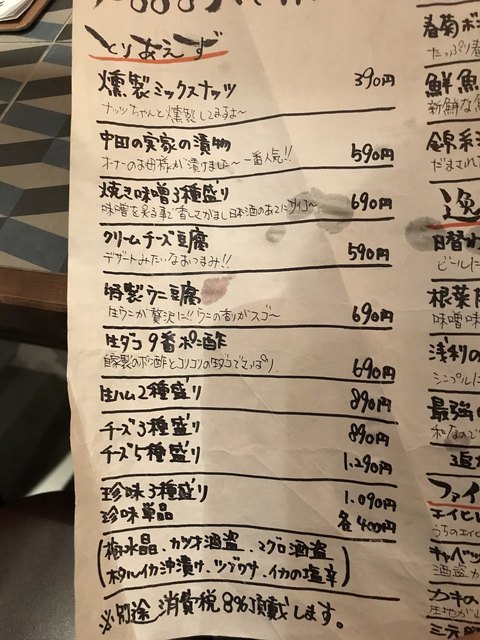 とりあえず
燻製ミックスナッツ 390円
ナッツちゃんと燻製してますよ〜
中田の実家の漬物 590円
オーナーのお母様が漬けました〜一番人気!!
焼き味噌3種盛り 690円
クリームチーズ豆腐 590円
デザートみたいなおつまみ!!
特製ウニ豆腐 690円
生ウニが贅沢に!!ウニの香りがスゴ〜
生ダコ9番ポン酢 690円
自家製のポン酢とコリコリの生ダコでさっぱり
生ハム2種盛り 890円
チーズ3種盛り 890円
チーズ5種盛り 1,290円
珍味3種盛り 1,090円
珍味単品 各400円
(梅水晶、カツオ酒盗、マグロ酒盗
ホタルイカ沖漬け、ツブワサ、イカの塩辛)
※別途 消費税8%頂戴します。
春菊ポ
たっぷり春
鮮魚
新鮮な
錦糸
だまされ
逸
日替わ
ビールに
根菜
味噌味
浅利の
シンプルに
最強の
和なので
追加
ファイ
エイヒレ
うちのエイヒ
キャベツ
酒盗が
カキの